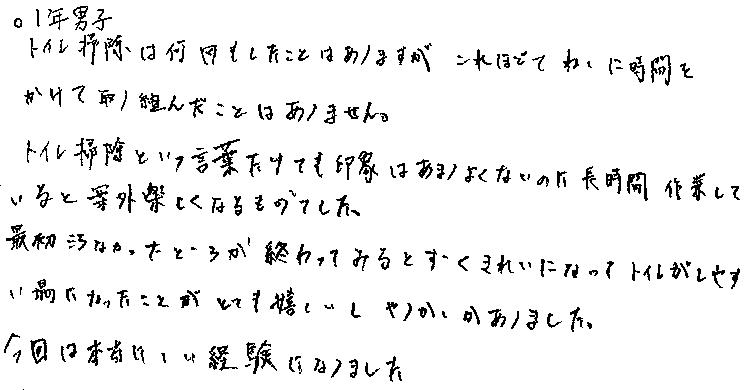 ○ 1年男子
トイレ掃除は何回もしたことはありますが これほどていねいに時間を
かけて取り組んだことはありません。
トイレ掃除という言葉だけでも印象はあまりよくないのに長時間 作業して
いると案外楽しくなるものでした。
最初汚なかったところが 終わってみるとすごくきれいになって トイレがしやす
い場になったことが とても嬉しいし やりがいがありました。
今回は本当にいい経験になりました